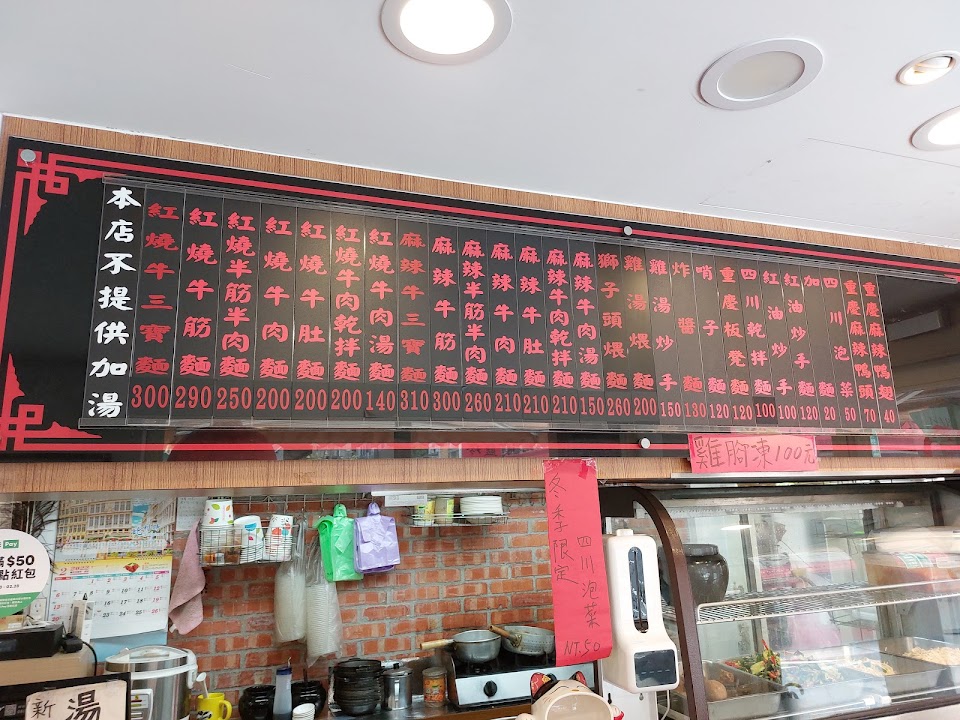 本店不提供加湯
紅燒牛三寶麵 300
紅燒牛筋麵 290
紅燒半筋半肉麵 250
紅燒牛肉麵 200
紅燒牛肚麵 200
紅燒牛肉乾拌麵 200
紅燒牛肉湯麵 140
麻辣牛三寶麵 310
麻辣牛筋麵 300
麻辣半筋半肉麵 260
麻辣牛肉麵 210
麻辣牛肚麵 210
麻辣牛肉乾拌麵 210
麻辣牛肉湯麵 150
獅子頭煨麵 260
雞湯煨麵 200
雞湯炒手 150
炸醬麵 130
哨子麵 120
重慶板凳麵 120
四川乾拌麵 100
紅油炒手 100
紅油炒手麵 120
加麵 20
四川泡菜 50
重慶麻辣鴨頭 70
重慶麻辣鴨翅 40
雞腳凍100元
冬季限定
四川泡菜
NT.50
Pay
滿$50
點紅包
新
湯